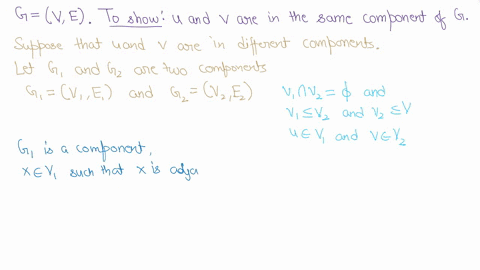 G = (V, E). To show: u and v are in the same component of G.
Suppose that u and v are in different components.
Let G₁ and G₂ are two components
G₁ = (V₁, E₁) and G₂ = (V₂, E₂)
V₁ ∩ V₂ = ϕ and
V₁ ≤ V₂ and V₂ ≤ V
u ∈ V₁ and v ∈ V₂
G₁ is a component,
x ∈ V₁ such that x is adja